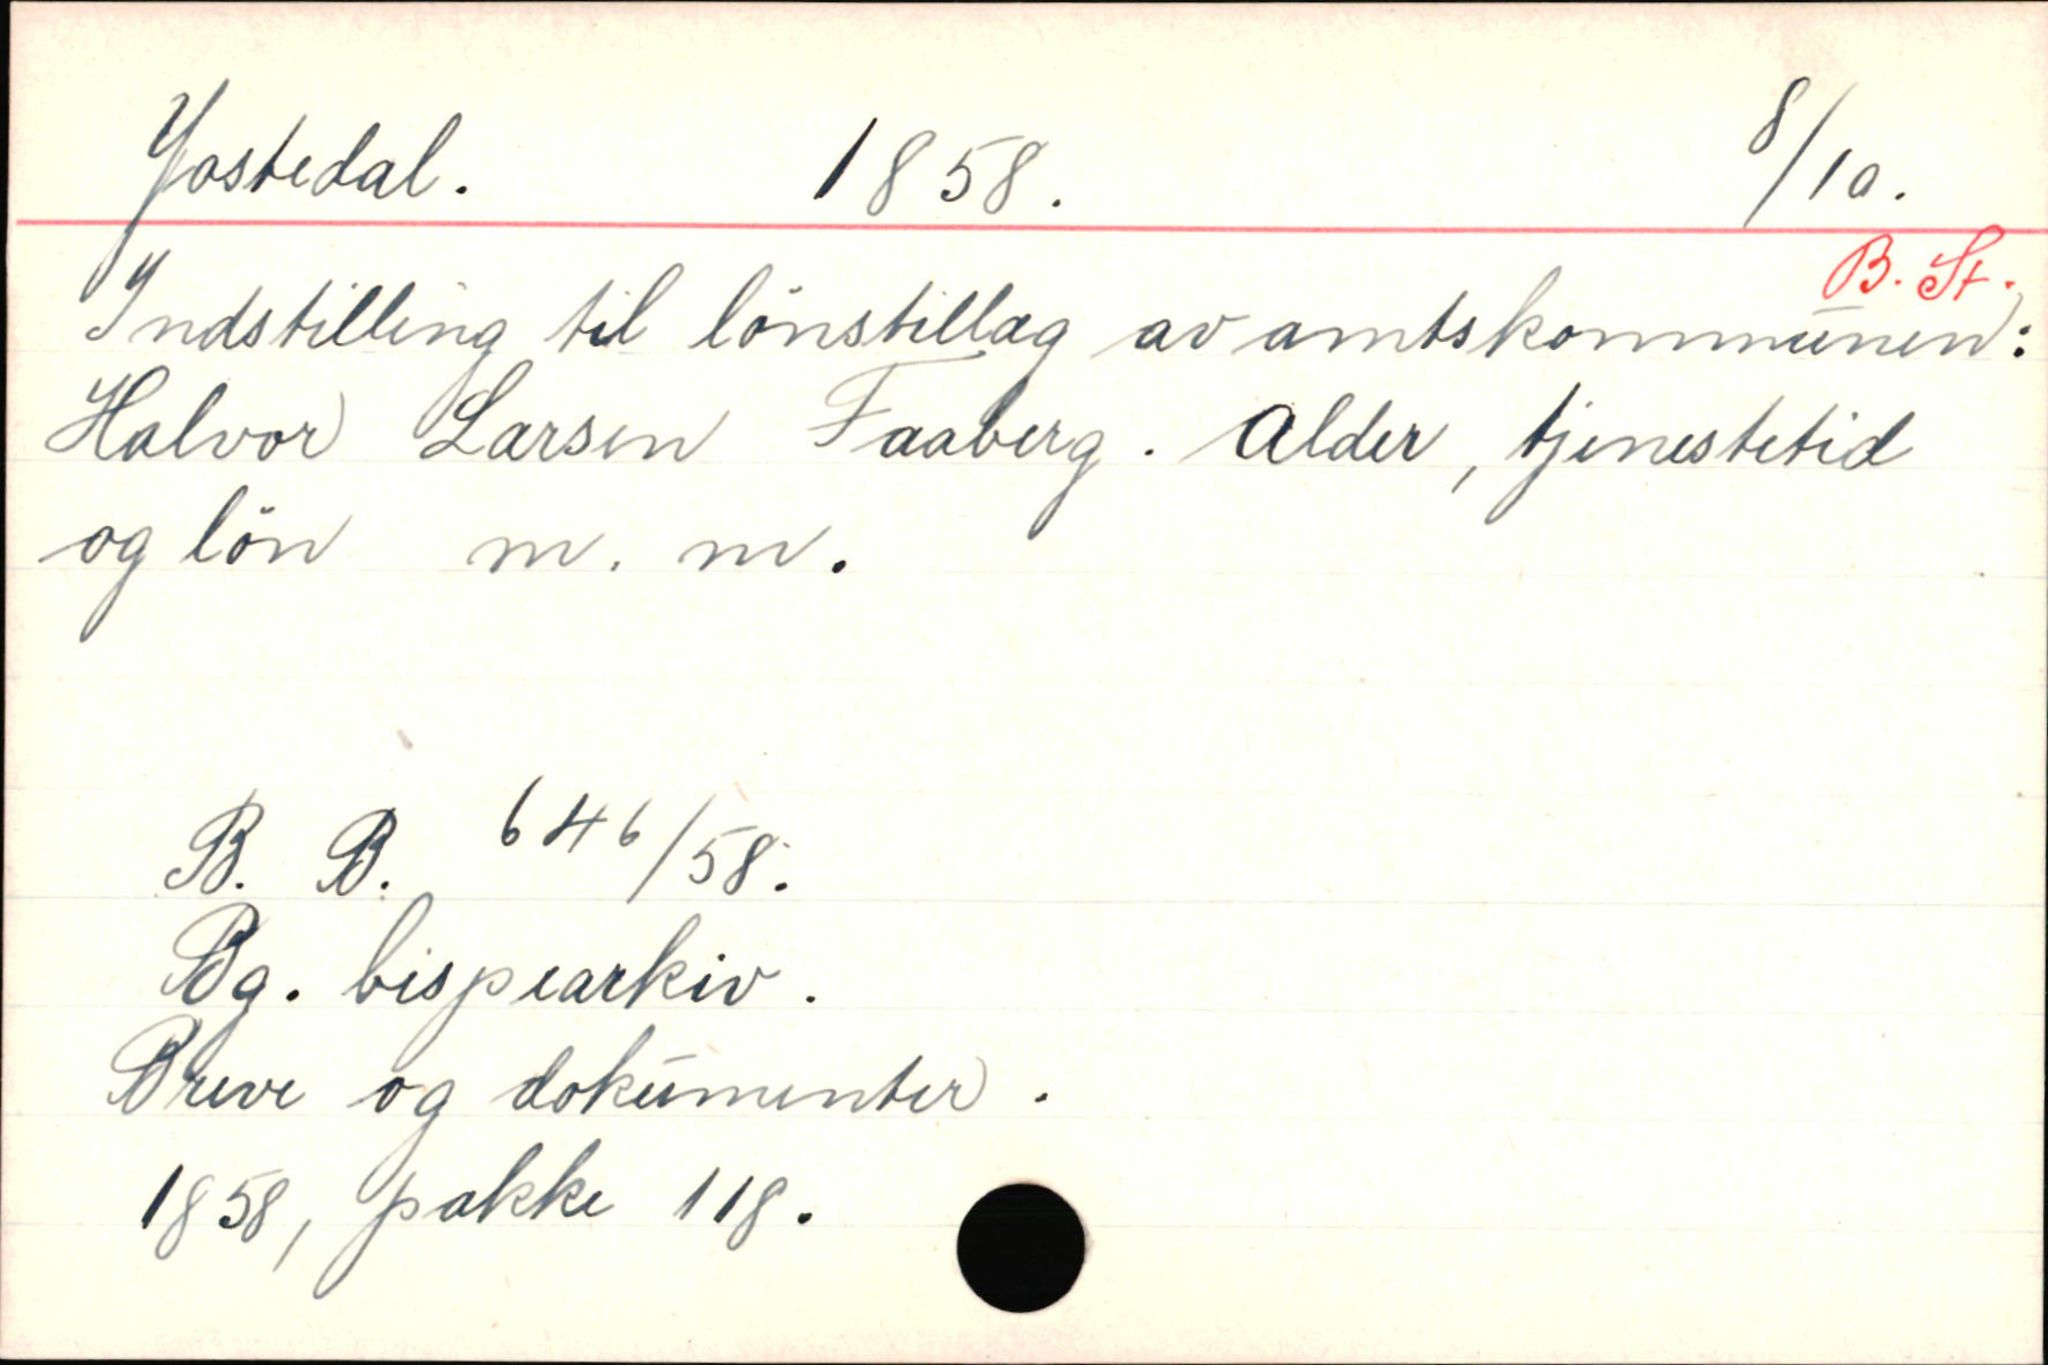 Jostedal. 1858. 8/10.
B. St.
Indstilling til lönstillæg av amtskommunen:
Halvor Larsen Faaberg. Alder, tjenestetid
og lön m. m.
B. B. 646/58.
Bg. bispearkiv.
Breve og dokumenter.
1858, pakke 118.